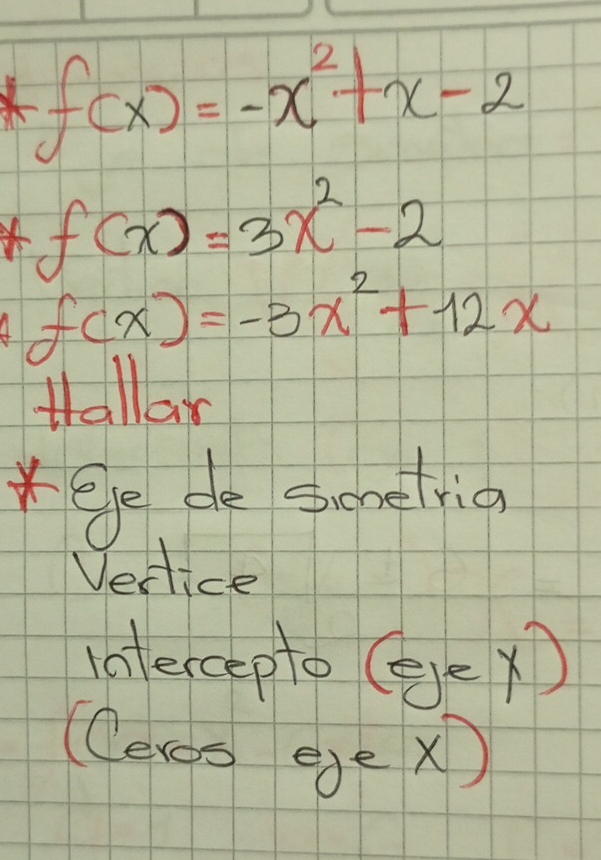 * f(x) = -x² + x - 2
* f(x) = 3x² - 2
* f(x) = -3x² + 12x
Hallar
* Eje de simetria
Vertice
intercepto (eje y)
(Ceros eje x)